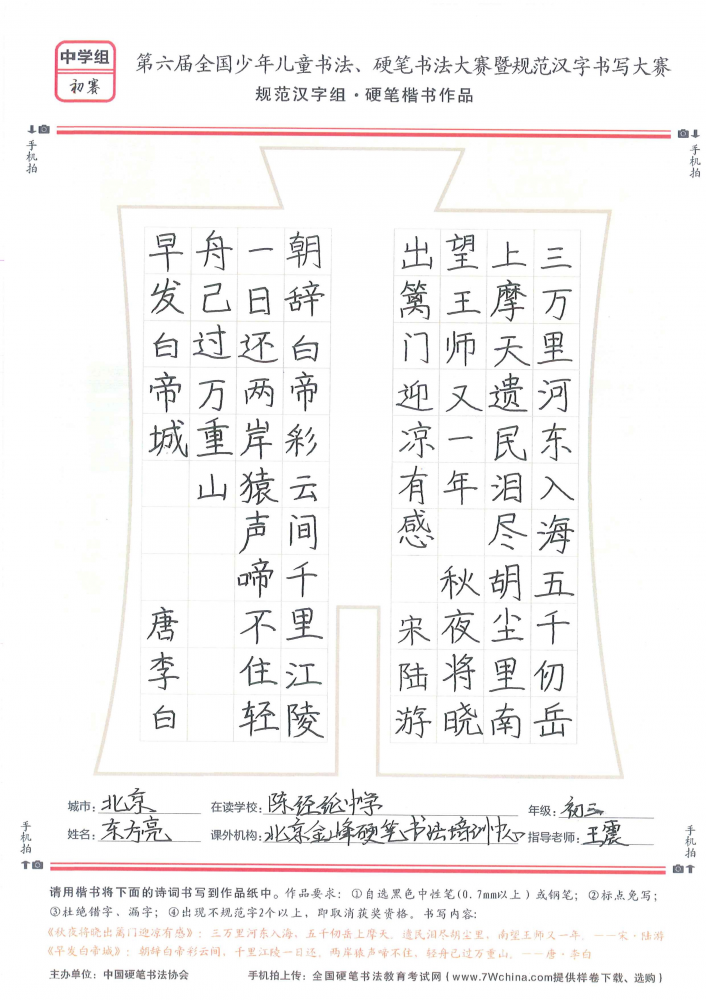 中学组
初赛
第六届全国少年儿童书法、硬笔书法大赛暨规范汉字书写大赛
规范汉字组·硬笔楷书作品
手机拍
手机拍
三万里河东入海五千仞岳
上摩天遗民泪尽胡尘里南
望王师又一年 秋夜将晓
出篱门迎凉有感 宋陆游
朝辞白帝彩云间千里江陵
一日还两岸猿声啼不住轻
舟己过万重山
早发白帝城 唐李白
城市：北京 在读学校：陈经纶中学 年级：初三
姓名：东方亮 课外机构：北京金峰硬笔书法培训中心 指导老师：王震
手机拍
手机拍
请用楷书将下面的诗词书写到作品纸中。作品要求：①自选黑色中性笔(0.7mm以上）或钢笔；②标点免写；
③杜绝错字、漏字；④出现不规范字2个以上，即取消获奖资格。书写内容：
《秋夜将晓出篱门迎凉有感》：三万里河东入海，五千仞岳上摩天。遗民泪尽胡尘里，南望王师又一年。——宋·陆游
《早发白帝城》：朝辞白帝彩云间，千里江陵一日还。两岸猿声啼不住，轻舟已过万重山。——唐·李白
主办单位：中国硬笔书法协会 手机拍上传：全国硬笔书法教育考试网（www.7Wchina.com提供样卷下载、选购）